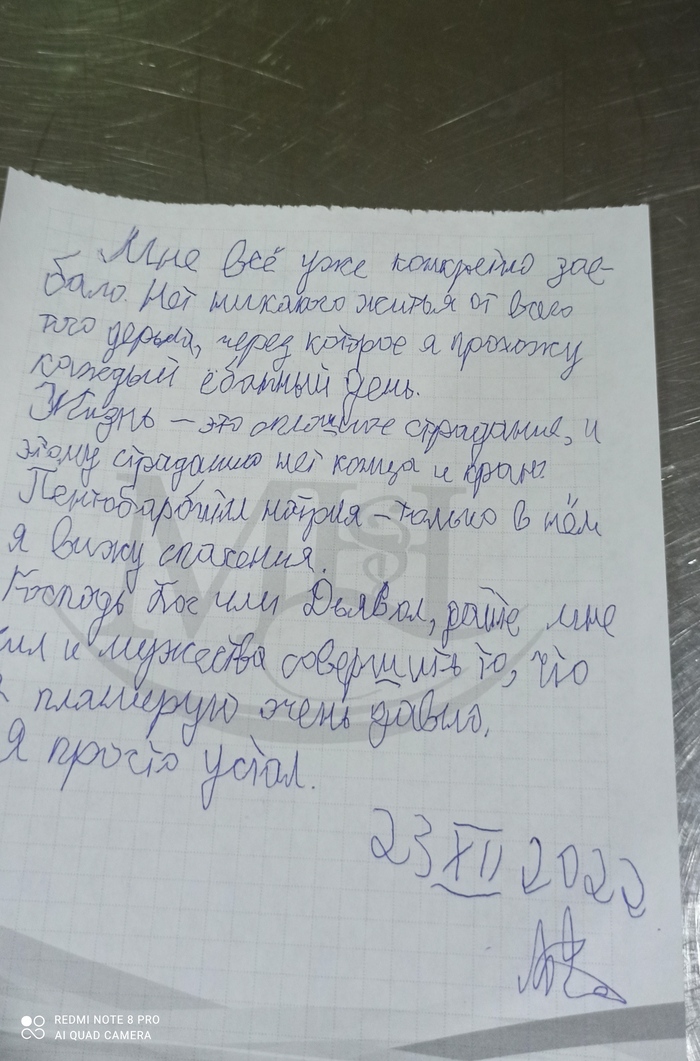 Мне всё уже конкретно зае-
бало. Нет никакого житья от всего
того дерьма, через которое я прохожу
каждый ёбанный день.
Жизнь – это сплошное страдание, и
этому страданию нет конца и края.
Пентобарбитал натрия – только в нём
я вижу спасения.
Господь Бог или Дьявол, дайте мне
сил и мужества совершить то, что
я планирую очень давно.
Я просто устал.
23 XII 2022
REDMI NOTE 8 PRO
AI QUAD CAMERA